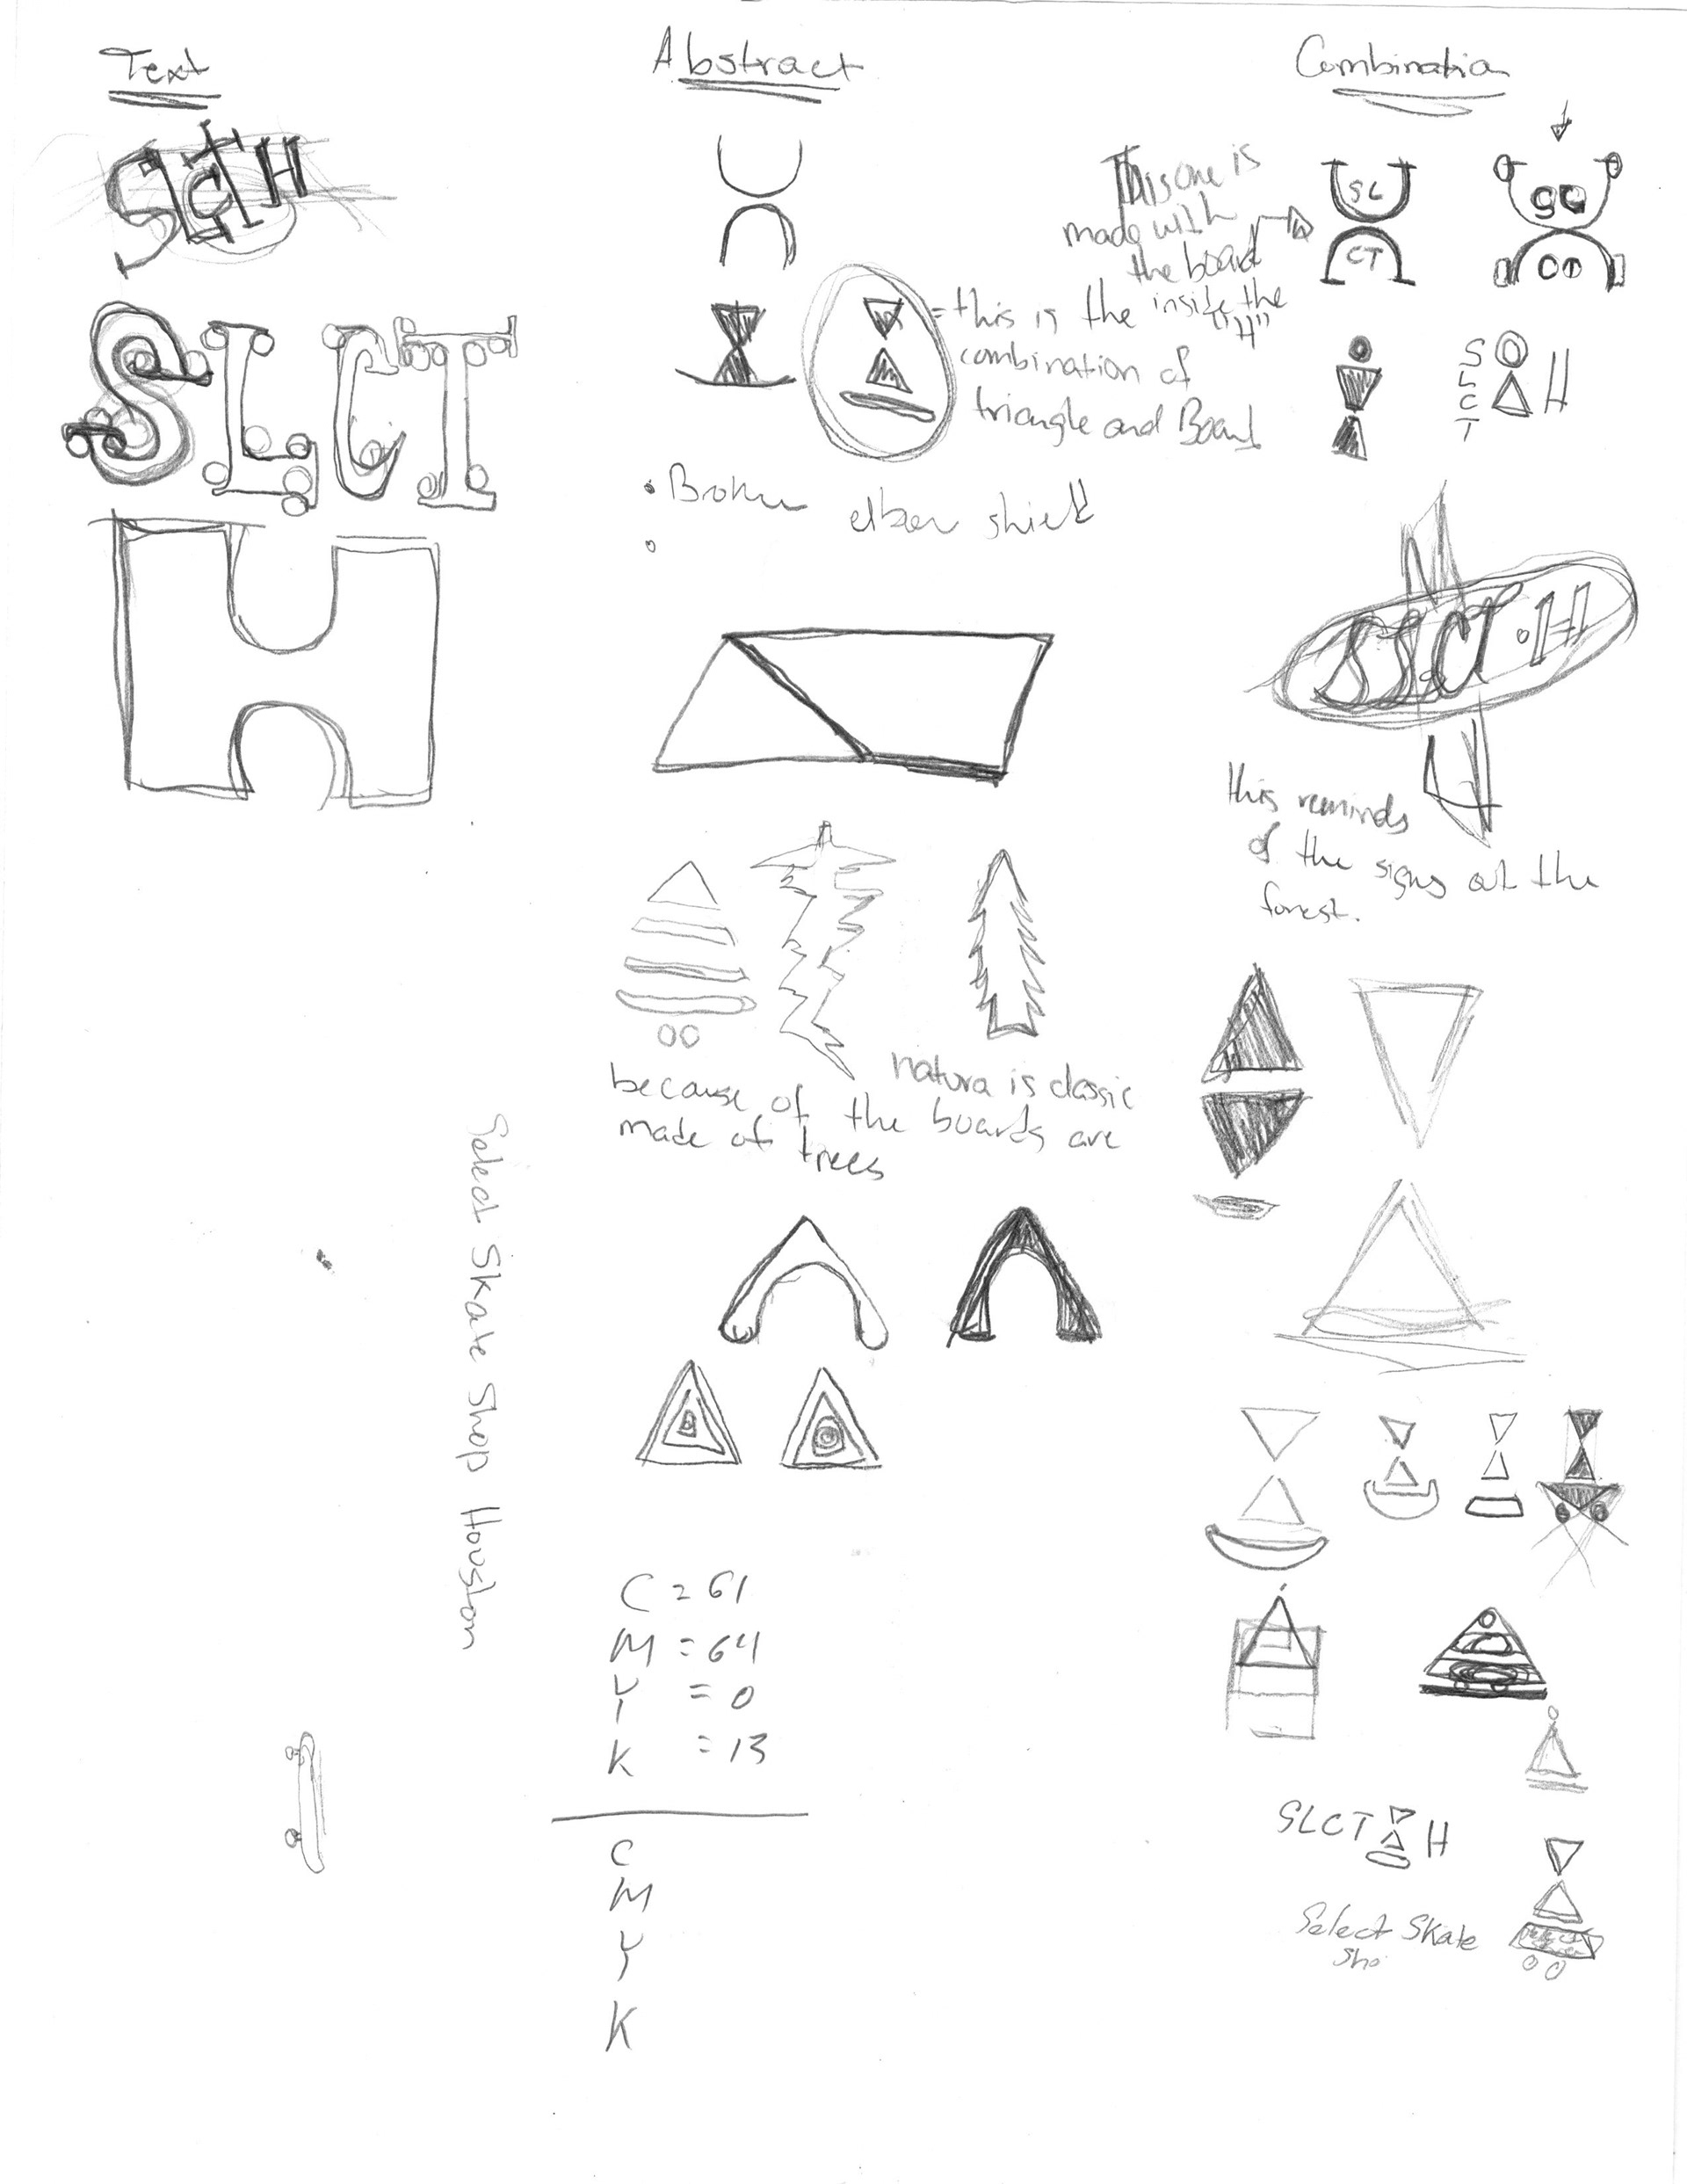 Text
SLCTH
SLCT
H
Select Skate Shop Houston
Abstract
=this is the inside the "H"
combination of
triangle and Board
• Broken elbow shield
natura is classic
because of the boards are
made of trees
C = 61
M = 64
Y = 0
K = 13
C
M
Y
K
Combination
This one is
made with
the board
SL
CT
CT
S
L
C
T
H
SLCT.H
this reminds
of the signs out the
forest.
SLCT H
Select Skate
Sho